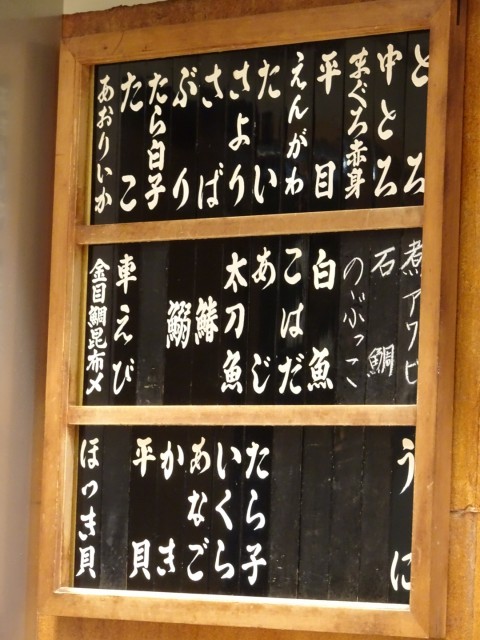 とろ
中とろ
まぐろ赤身
平目
えんがわ
たい
さより
さば
ぶり
たら白子
たこ
あおりいか
煮アワビ
石鯛
のぶっこ
白魚
こはだ
あじ
太刀魚
鰆
鰯
車えび
金目鯛昆布〆
うに
たら子
いくら
あなご
かき
平貝
ほっき貝